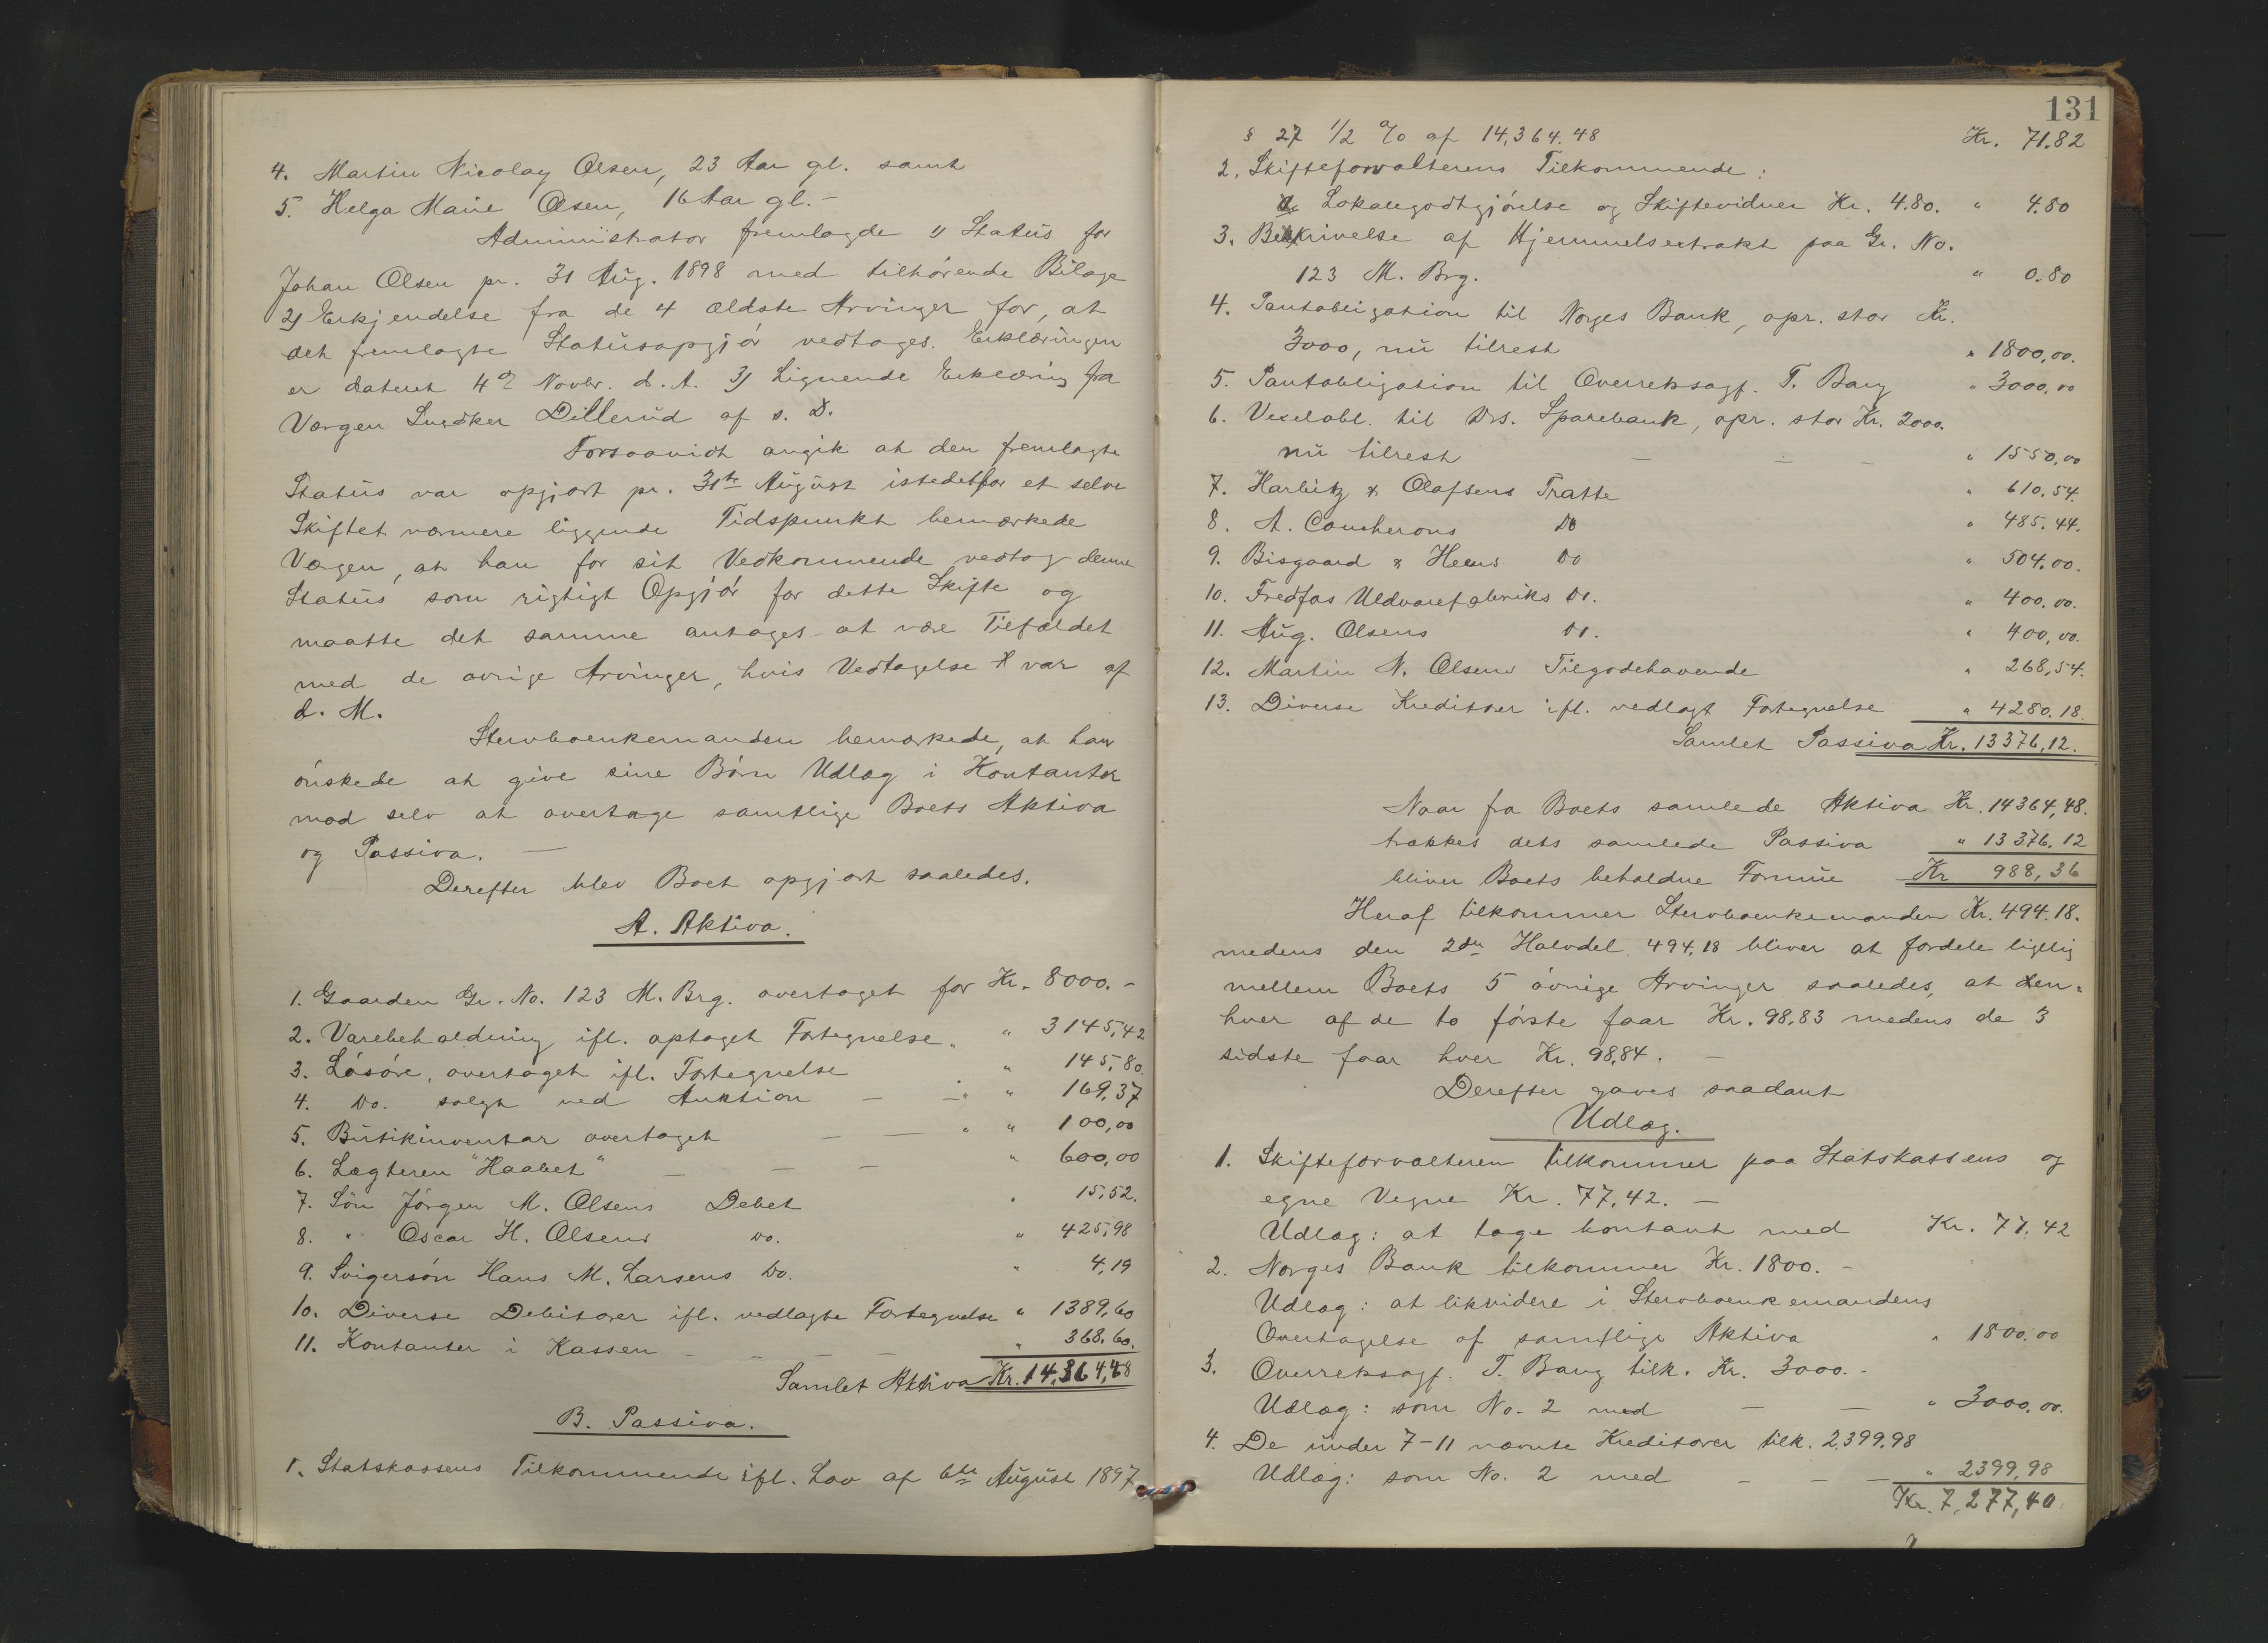 4. Martin Nicolay Olsen, 23 Aar gl. samt
5. Helga Marie Olsen, 16 Aar gl. -
Administrator fremlagde 1) Status for
Johan Olsen pr. 31 Aug. 1898 med tilhørende Bilage
2) Erkjendelse fra de 4 ældste Arvinger for, at
det fremlagte Statusopgjør vedtages. Erklæringen
er dateret 4de Novbr. d. A. 3) Lignende Erklæring fra
Værgen Snedker Dillerud af s. D.
Forsaavidt angik at den fremlagte
Status var opgjort pr. 31te August istedetfor et selve
Skiftet nærmere liggende Tidspunkt bemærkede
Værgen, at han for sit Vedkommende vedtog denne
Status som rigtigt Opgjør for dette Skifte og
maatte det samme antages at være Tilfældet
med de øvrige Arvinger, hvis Vedtagelse var af
d. M.
Stervboenkemanden bemærkede, at han
ønskede at give sine Børn Udlæg i Kontanter
mod selv at overtage samtlige Boets Aktiva
og Passiva. -
Derefter blev Boet opgjort saaledes.
A. Aktiva.
1. Gaarden Gr. No. 123 M. Brg. overtaget for Kr. 8000. -
2. Varebeholdning ifl. optaget Fortegnelse " " 3145,42
3. Løsøre, overtaget ifl. Fortegnelse " 145,80.
4. Do. solgt ved Auktion - - " " 169,37
5. Butikinventar overtaget - - " " 100,00
6. Lægteren "Haabet" - - - " 600,00
7. Søn Jørgen M. Olsens Debet " 15,52.
8. " Oscar H. Olsens Do. " 425,98
9. Svigersøn Hans M. Larsens Do. " 4,19
10. Diverse Debitorer ifl. vedlagte Fortegnelse " 1389,60
11. Kontanter i Kassen - - - - " 368,60.
Samlet Aktiva Kr. 14,364,48
B. Passiva.
1. Statskassens Tilkommende ifl. Lov af 6te August 1897
131
§ 27 1/2 % af 14,364.48 Kr. 71.82
2. Skifteforvalterens Tilkommende:
Lokalegodtgjørelse og Skiftevidner Kr. 4.80. " 4.80
3. Beskrivelse af Hjemmelsextrakt paa Gr. No.
123 M. Brg. " 0.80
4. Pantobligation til Norges Bank, opr. stor Kr.
3000, nu tilrest " 1800,00.
5. Pantobligation til Overretssagf. T. Bang " 3000,00
6. Vexelobl. til Drs. Sparebank, opr. stor Kr. 2000.
nu tilrest - - - " 1550,00
7. Harbitz & Olafsens Tratte " 610,54.
8. A. Coucherons Do " 485.44.
9. Bisgaard & Heens Do " 504.00.
10. Fredfos Uldvarefabriks Do. " 400.00.
11. Aug. Olsens Do. " 400,00.
12. Martin N. Olsens Tilgodehavende " 268,54.
13. Diverse Kreditorer ifl. vedlagt Fortegnelse " 4280.18.
Samlet Passiva Kr. 13376,12.
Naar fra Boets samlede Aktiva Kr. 14364,48.
trækkes dets samlede Passiva " 13376.12
bliver Boets beholdne Formue Kr 988,36
Heraf tilkommer Stervboenkemanden Kr. 494.18.
medens den 2den Halvdel 494,18 bliver at fordele ligelig
mellem Boets 5 øvrige Arvinger saaledes, at en-
hver af de to første faar Kr. 98,83 medens de 3
sidste faar hver Kr. 98,84. -
Derefter gaves saadant
Udlæg.
1. Skifteforvalteren tilkommer paa Statskassens og
egne Vegne Kr. 77,42. -
Udlæg: at tage kontant med Kr. 77.42
2. Norges Bank tilkommer Kr. 1800. -
Udlæg: at likvidere i Stervboenkemandens
Overtagelse af samtlige Aktiva " 1800.00
3. Overretssagf. T. Bang tilk. Kr. 3000. -
Udlæg: som No. 2 med - - " 3000.00.
4. De under 7-11 nævnte Kreditorer tilk. 2,399,98
Udlæg: som No. 2 med - - - " 2399,98
Kr. 7,277,40